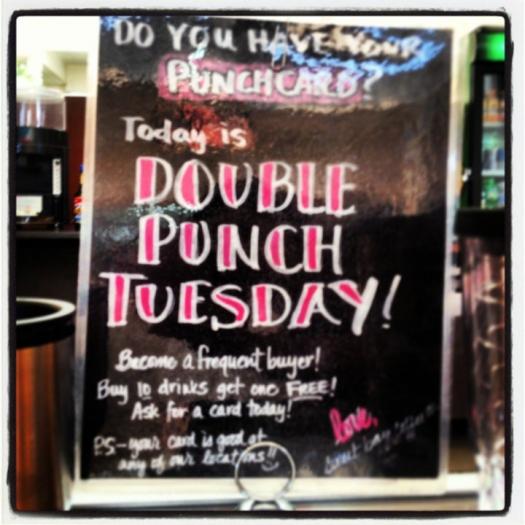 DO YOU HAVE YOUR
PUNCHCARD?
Today is
DOUBLE
PUNCH
TUESDAY!
Become a frequent buyer!
Buy 10 drinks get one FREE!
Ask for a card today!
PS-your card is good at
any of our locations!!
love,